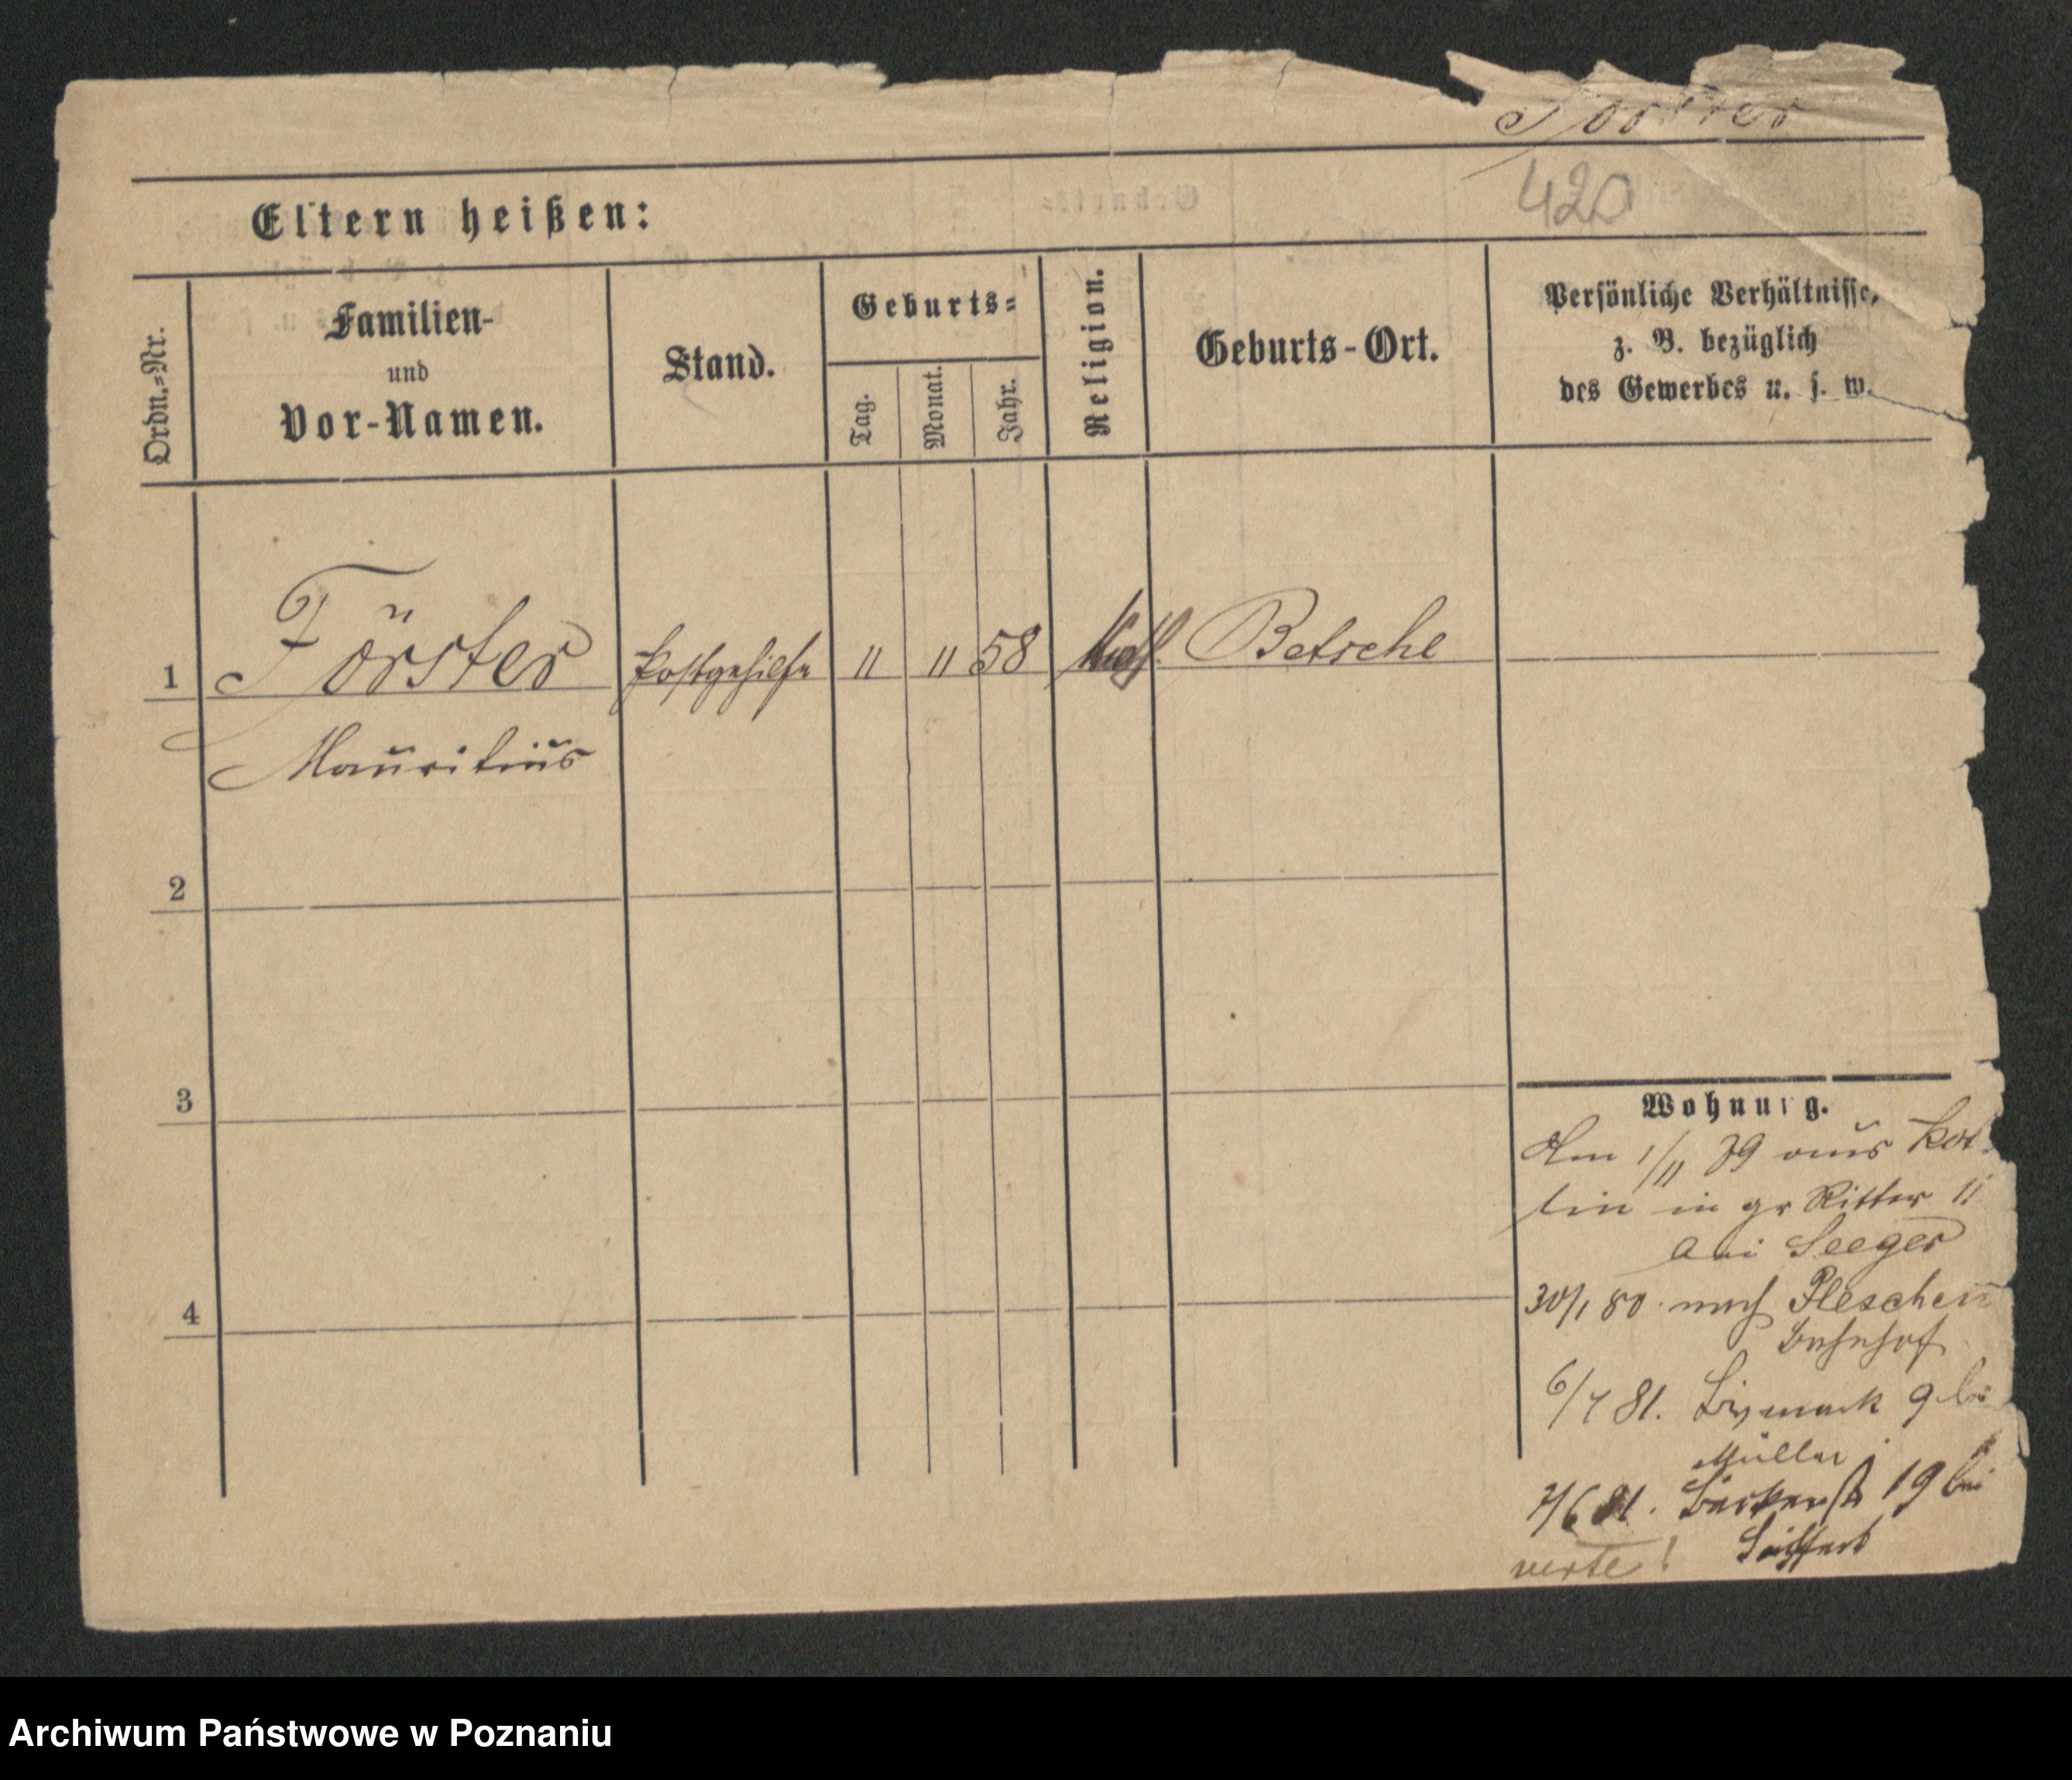 Förster
420
Eltern heißen:
Ordn.=Nr.
Familien-
und
Vor-Namen.
Stand.
Geburts=
Tag.
Monat.
Jahr.
Religion.
Geburts-Ort.
Persönliche Verhältnisse,
z. B. bezüglich
des Gewerbes u. s. w.
1 Förster Postgehilfe 11 11 58 Kath. Betsche
Mauritius
2
3
4
Wohnung.
Am 1/11 79 aus Kos
tin in gr Ritter 11
bei Seeger
30/1 80. nach Pleschen
Bahnhof
6/4 81. Bismark 9 bei
Müller
7/6 81. Bäckerstr 19 bei
Seiffert
verte!
Archiwum Państwowe w Poznaniu